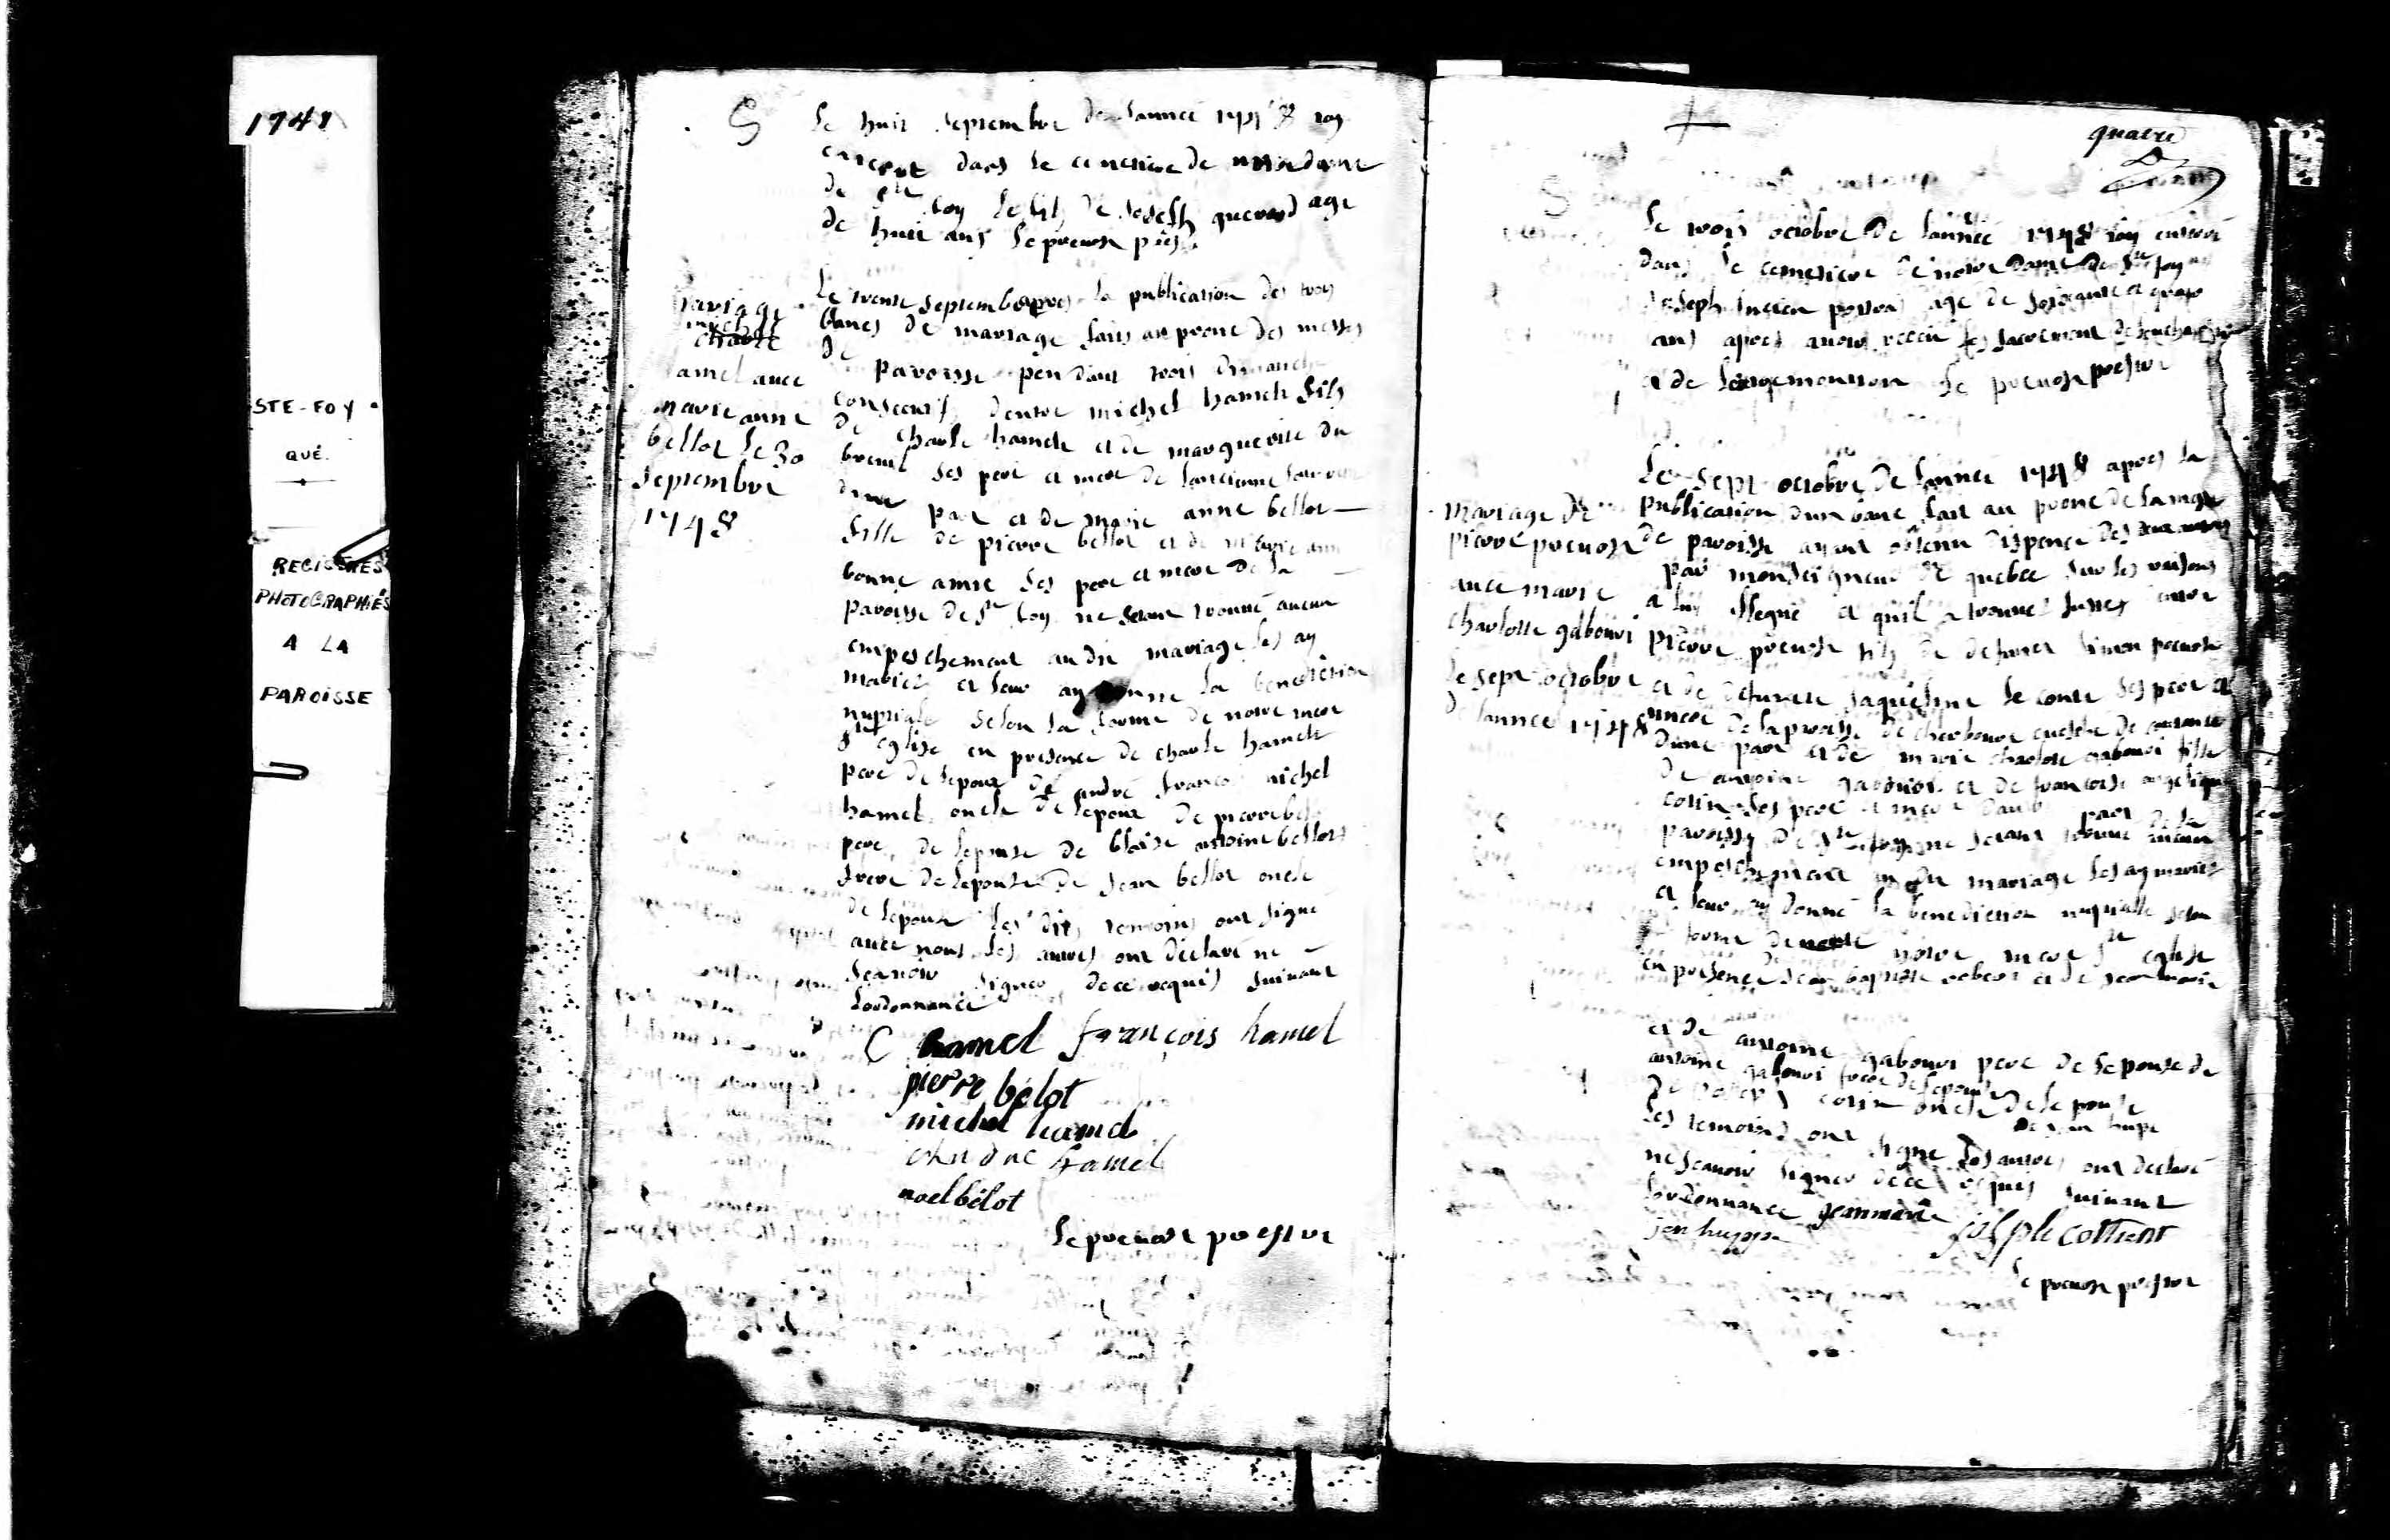 1748
STE-FOY
QUÉ.
REGISTRES
PHOTOGRAPHIÉS
A LA
PAROISSE
S
Le huit septembre de lannee 1748 jay
enterré dans le cimetiere de nostre dame
de ste foy le fils de Joseph agé
de huit ans le prevost ptre
mariage
michel
hamel avec
marie anne
bellot le 30
septembre
1748
Le trente septembre apres la publication des trois
bancs de mariage fais au prone des messes
de paroisse pendant trois dimanche
consecutifs dentre michel hamel fils
de charle hamel et de marguerite du
breuil ses pere et mere de lancienne
dune part et de marie anne bellot
fille de pierre bellot et de marie anne
bonne amie ses pere et mere de la
paroisse de ste foy ne setant trouvé aucun
empeschement au dit mariage les ay
mariez et leur ay donne la benediction
nuptiale selon la forme de notre mere
ste eglise en presence de charle hamel
pere de lepoux de andré francois michel
hamel oncle de lepoux de pierre
pere de lepouse de blaise antoine bellot
frere de lepouse de Jean bellot oncle
de lepouse les dits temoins ont signe
avec nous les autres ont declaré ne
scavoir signer de ce requis suivant
lordonnance
C hamel françois hamel
pierre bélot
michel hamel
hamel
noel bélot
le prevost prestre
quatre
Le trois octobre de lannee 1748 jay enterré
dans le cemetiere de notre dame de ste foy
Joseph agé de soixante et
ans apres avoir receu les sacrement de
et de le prevost prestre
mariage de
pierre prevost
avec marie
charlotte gabouri
le sept octobre
de lannee 1748
Le sept octobre de lannee 1748 apres la
publication dun banc fait au prone de la
de paroisse ayant obtenu dispence des deux autres
par monseigneur de quebec sur les raisons
a luy allegue et quil a trouvé justes entre
pierre prevost fils de defunct simon prevost
et de defuncte jaqueline le conte ses pere et
mere de la paroisse de evesché de
dune part et de marie charlotte gabouri fille
de antoine gabouri et de francoise angelique
cotin ses pere et mere dautre part de la
paroisse de ste foy ne setant trouvé aucun
empeschement au dit mariage les ay mariez
et leur ay donné la benediction nuptialle selon
forme de notre mere ste eglise
en presence Jean baptiste et de Jean marie
et de antoine gabouri pere de lepouse de
antoine gabouri frere de lepouse
de Joseph cotin oncle de lepouse
de Jean
les temoins ont signe les autres ont declaré
ne scavoir signer de ce requis suivant
lordonnance
le prevost prestre